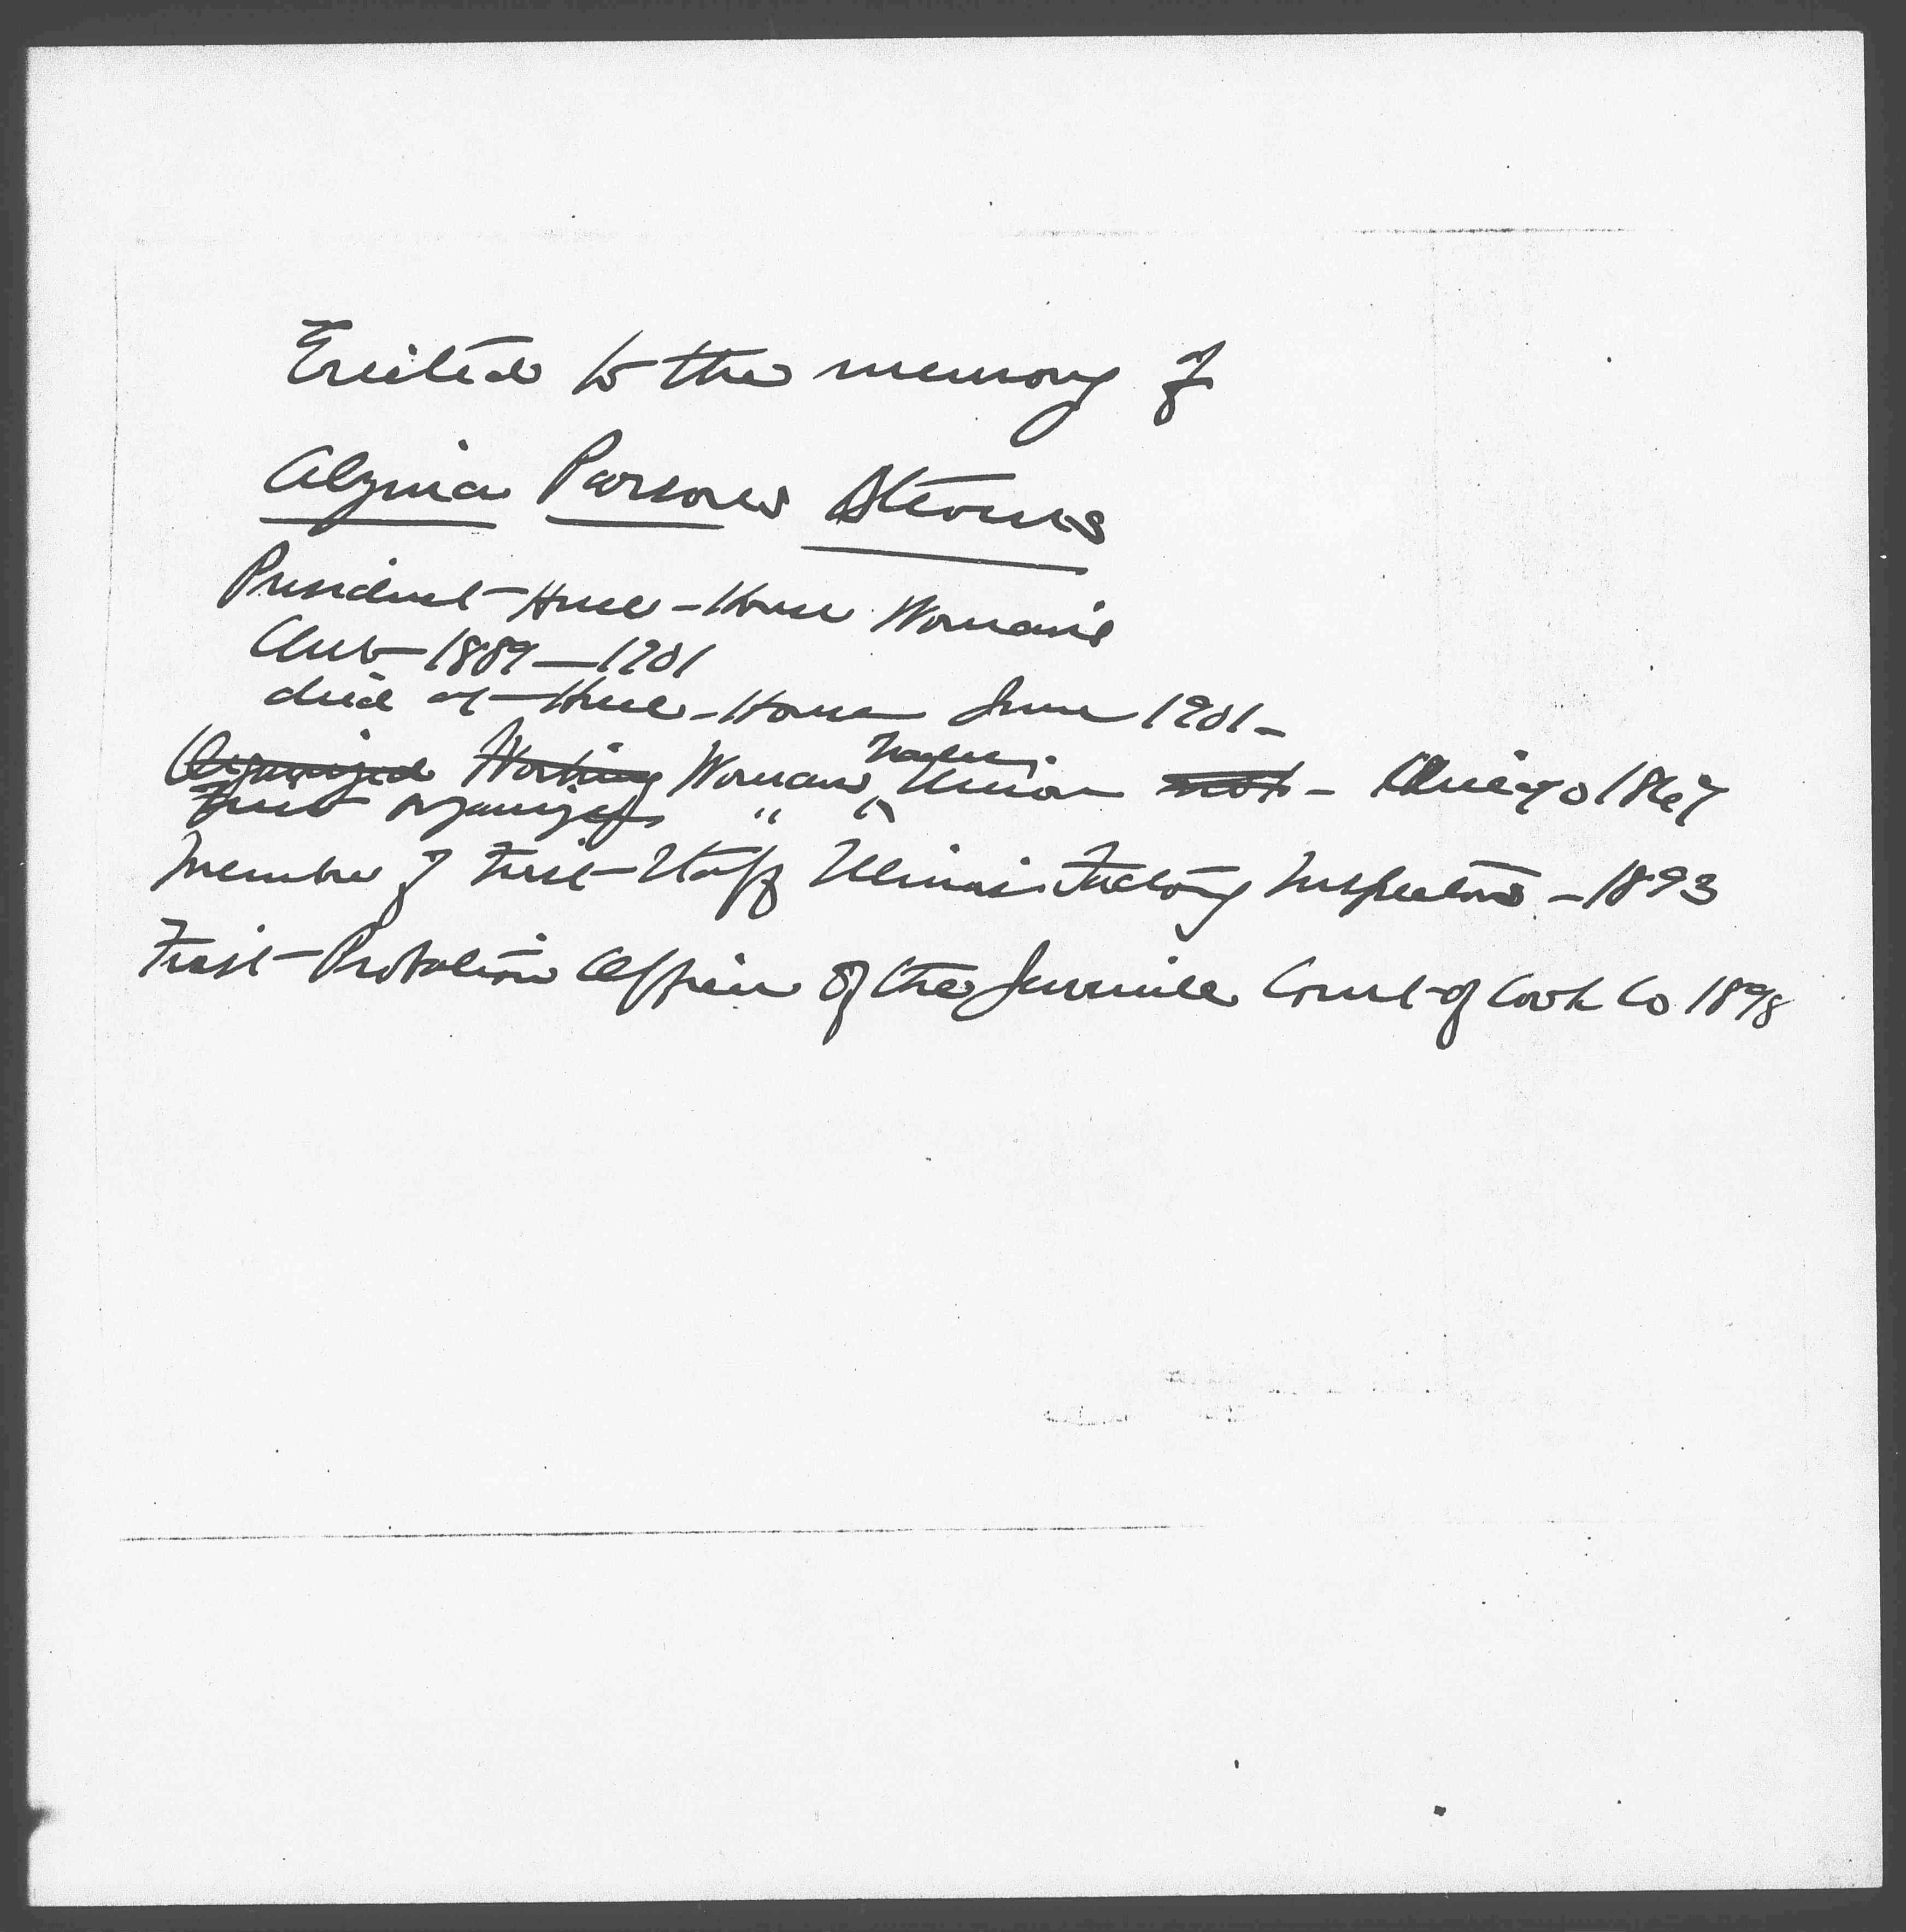 Erected to the memory of
Alzina Parsons Stevens
President Hull-House Woman's
Club 1889—1901
died at Hull-House June 1901-
Organized Working Woman's Trades Union - Chicago 1867
First organizer " "
Member of First Staff Illinois Factory Inspectors - 1893
First Probation Officer of the Juvenile Court of Cook Co 1898